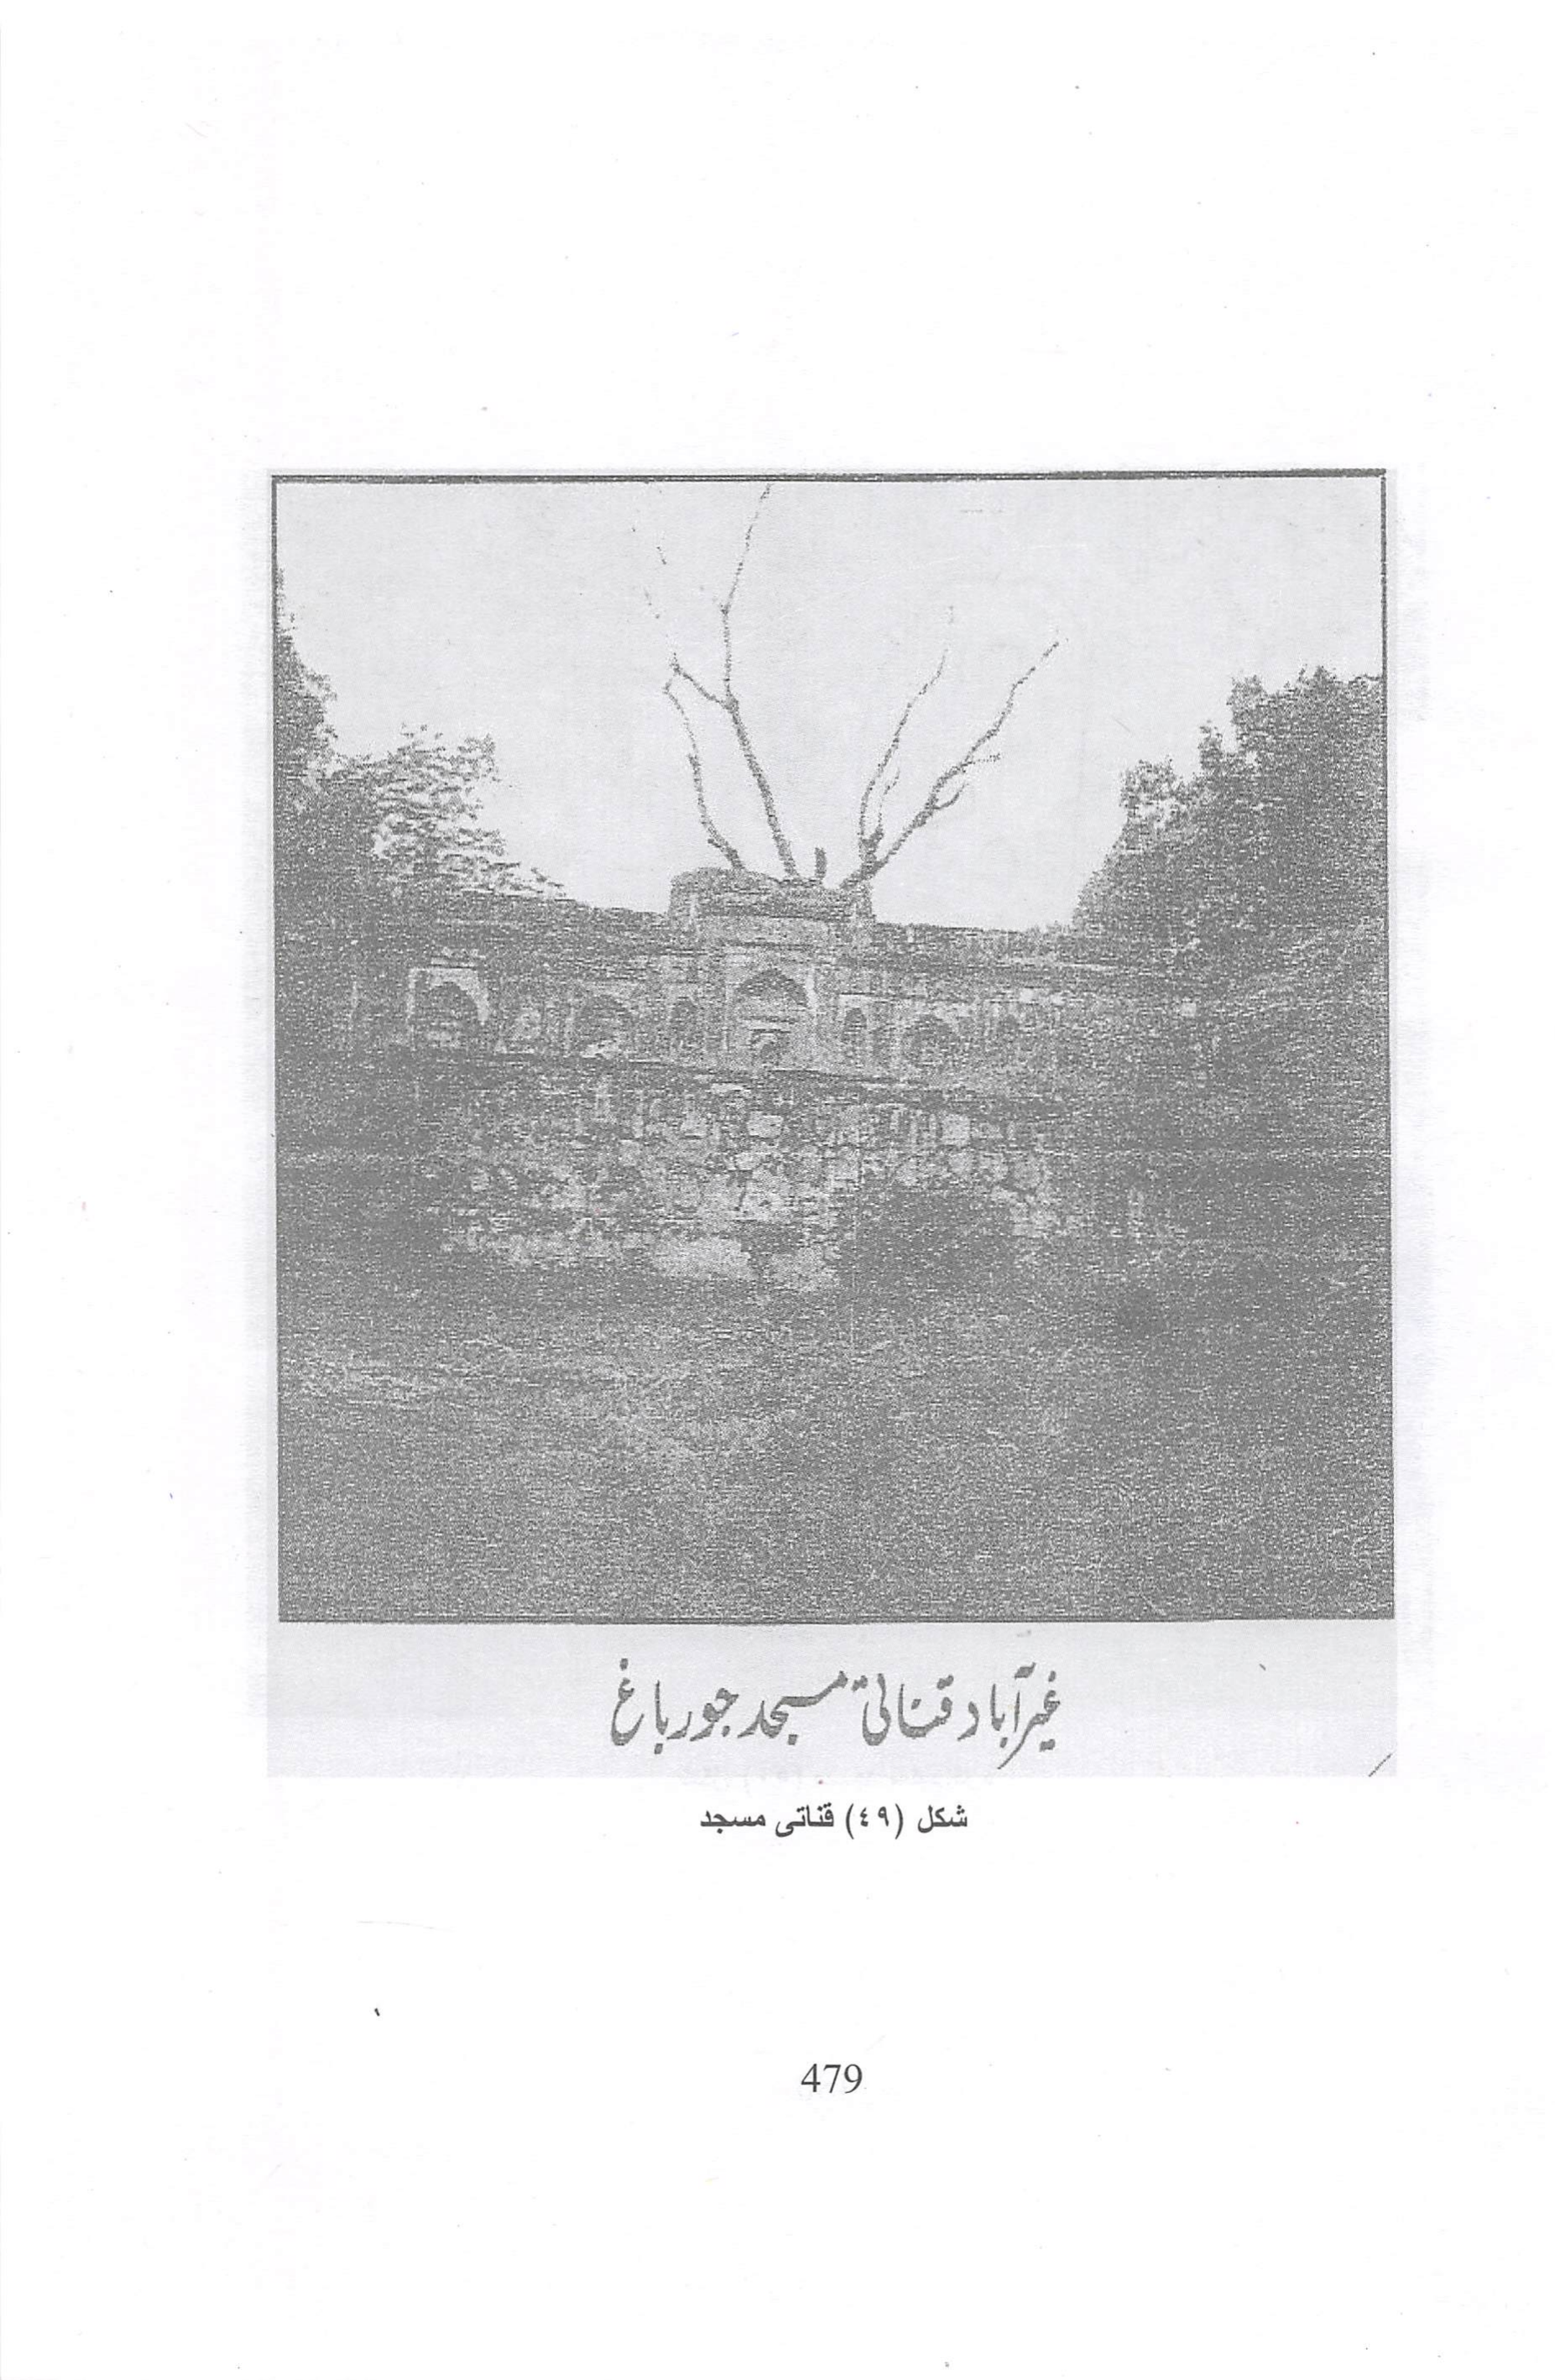 غیرآباد قناتی مسجد جورباغ
شكل (٤٩) قناتى مسجد
479